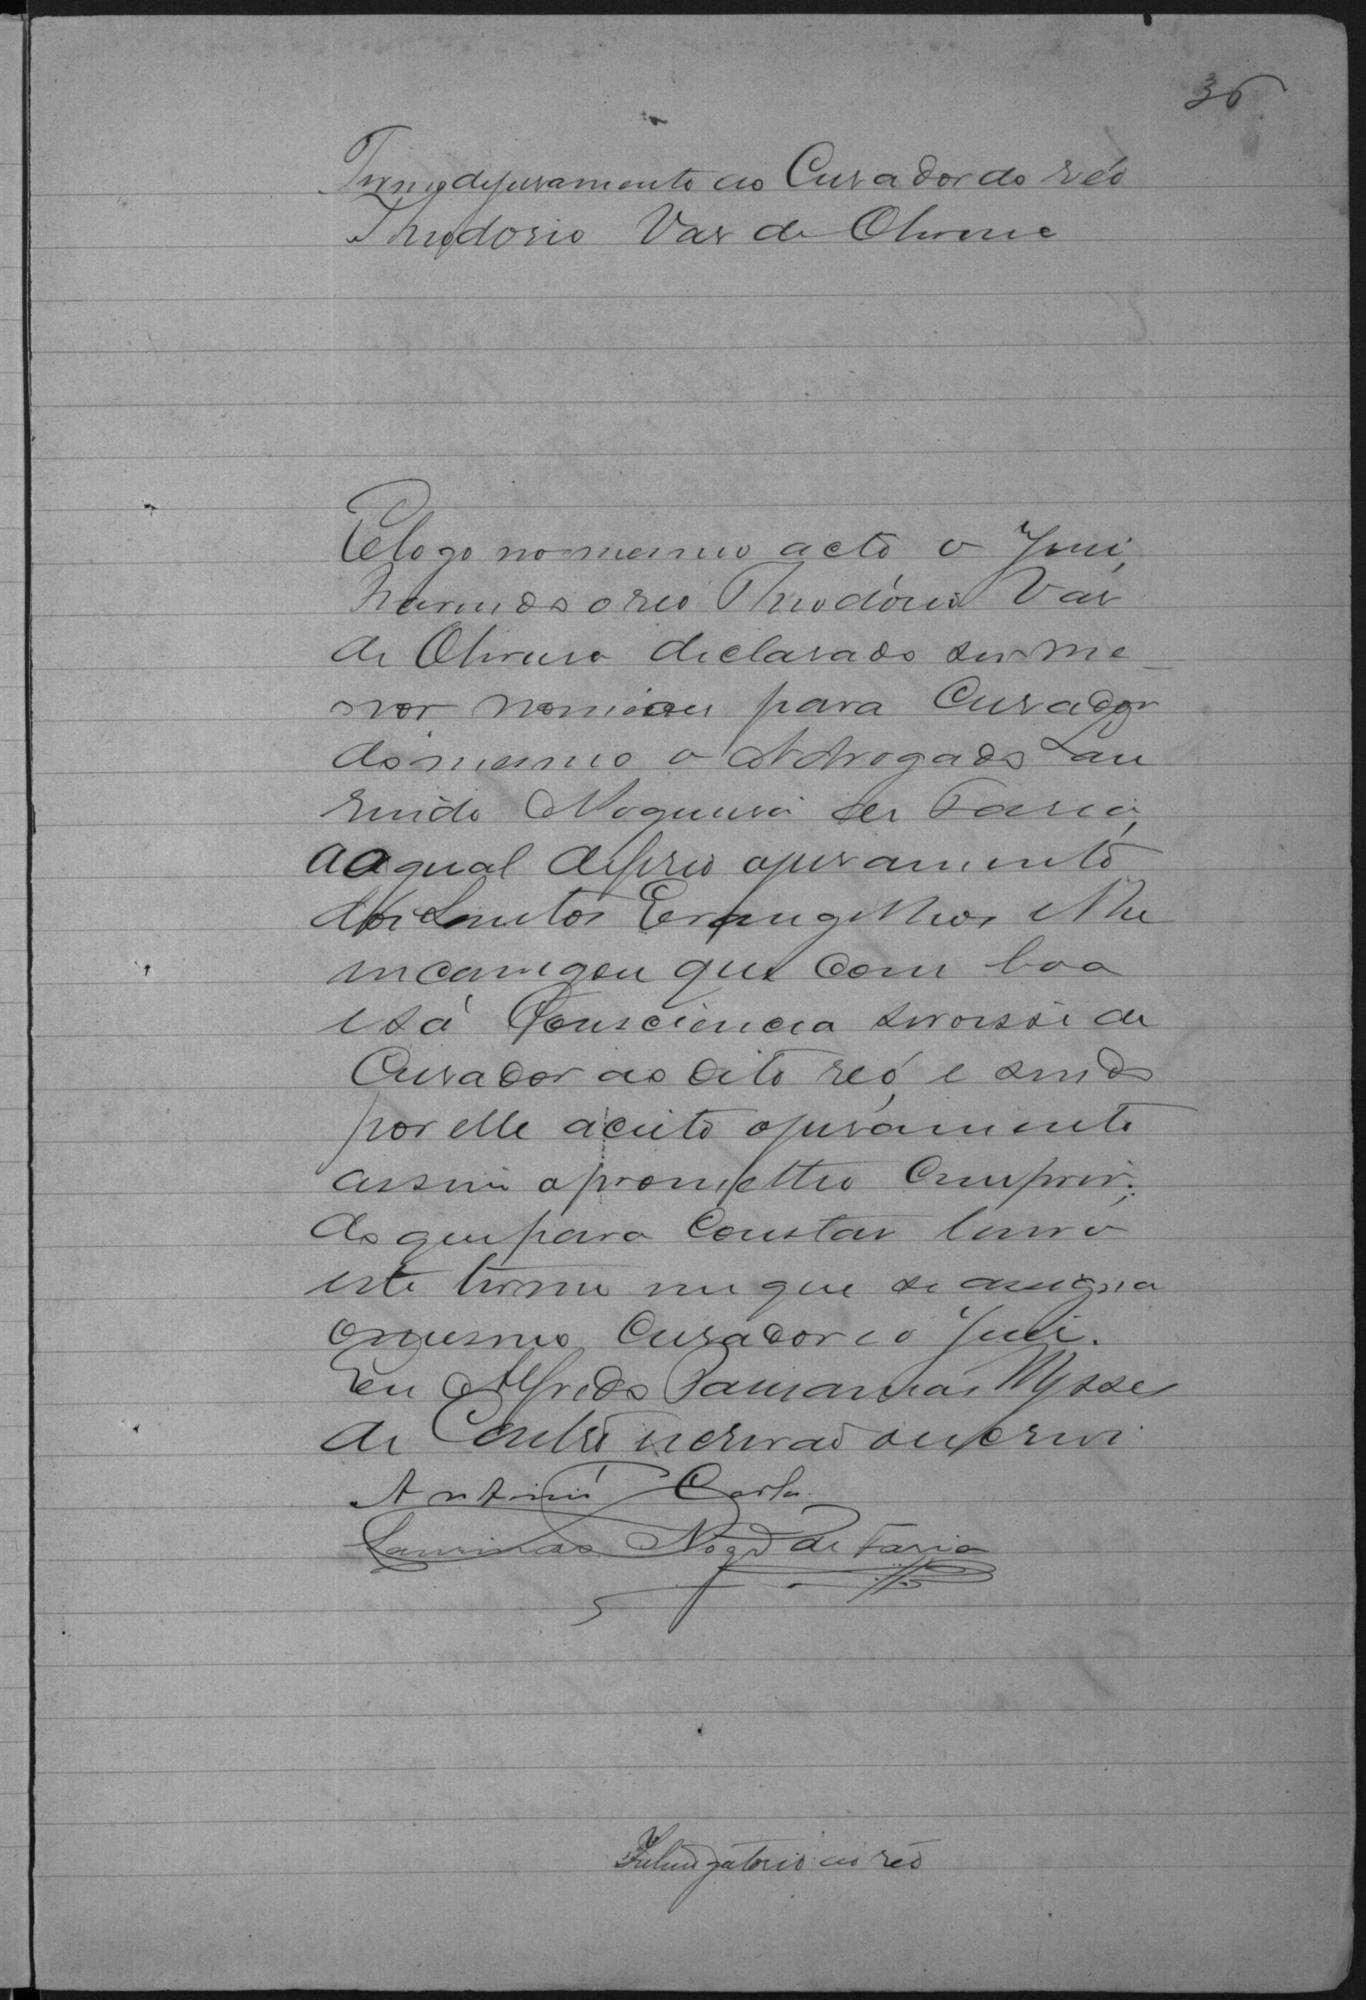 36
Termo de juramento ao Curador do réo
Theodosio Vaz de Oliveira
E logo no mesmo acto o Juiz,
havendo o reo Theodósio Vaz
de Oliveira declarado ser me-
nor nomeou para Curador
do mesmo o Advogado Lau
rindo Nogueira de Faria,
ao qual deferio o juramento
dos Santos Evangelhos e lhe
incarregou que com boa
e sá Consciencia servisse de
Curador ao dito reó, e sendo
por elle aceito o juramento
assim o prometteu Cumprir;
do que para Constar lavro
este termo em que se assigna
o mesmo Curador e o Juiz.
Eu Alfredo Ulysses
de Castro escrivão o escrevi
Antonio Carlos
Laurindo Nogª de Faria
Interrogatorio ao réo